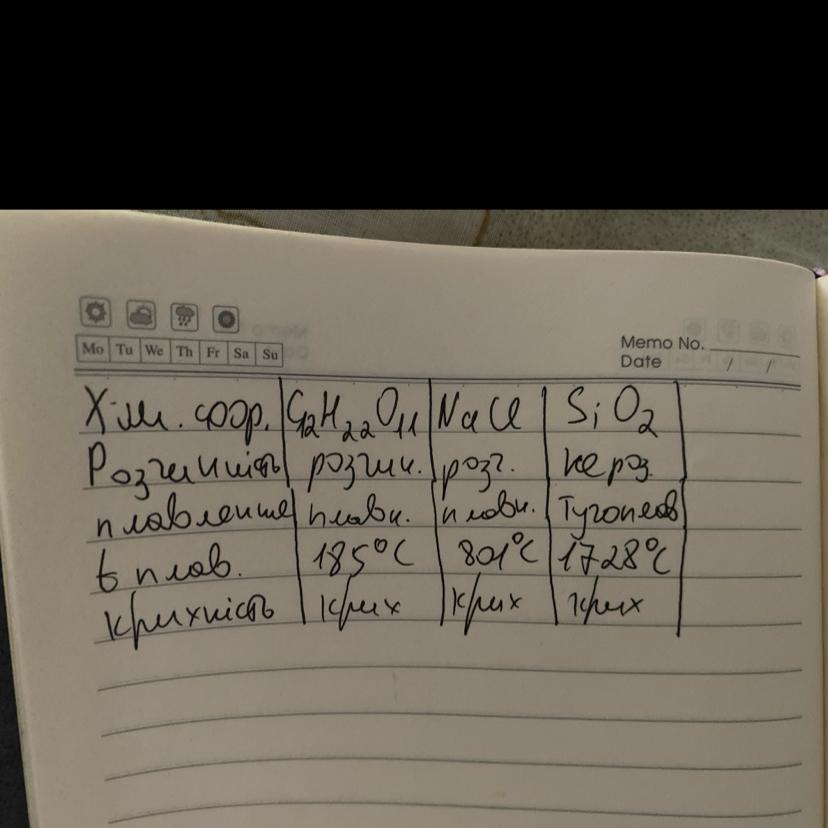 Mo Tu We Th Fr Sa Su
Memo No.
Date / /
Хім. фор. C12H22O11 NaCl SiO2
Розчинність розчин. розч. не роз.
плавление плавк. плавк. Тугоплав
t плав. 185°C 801°C 1728°C
крихкість крих крих крих